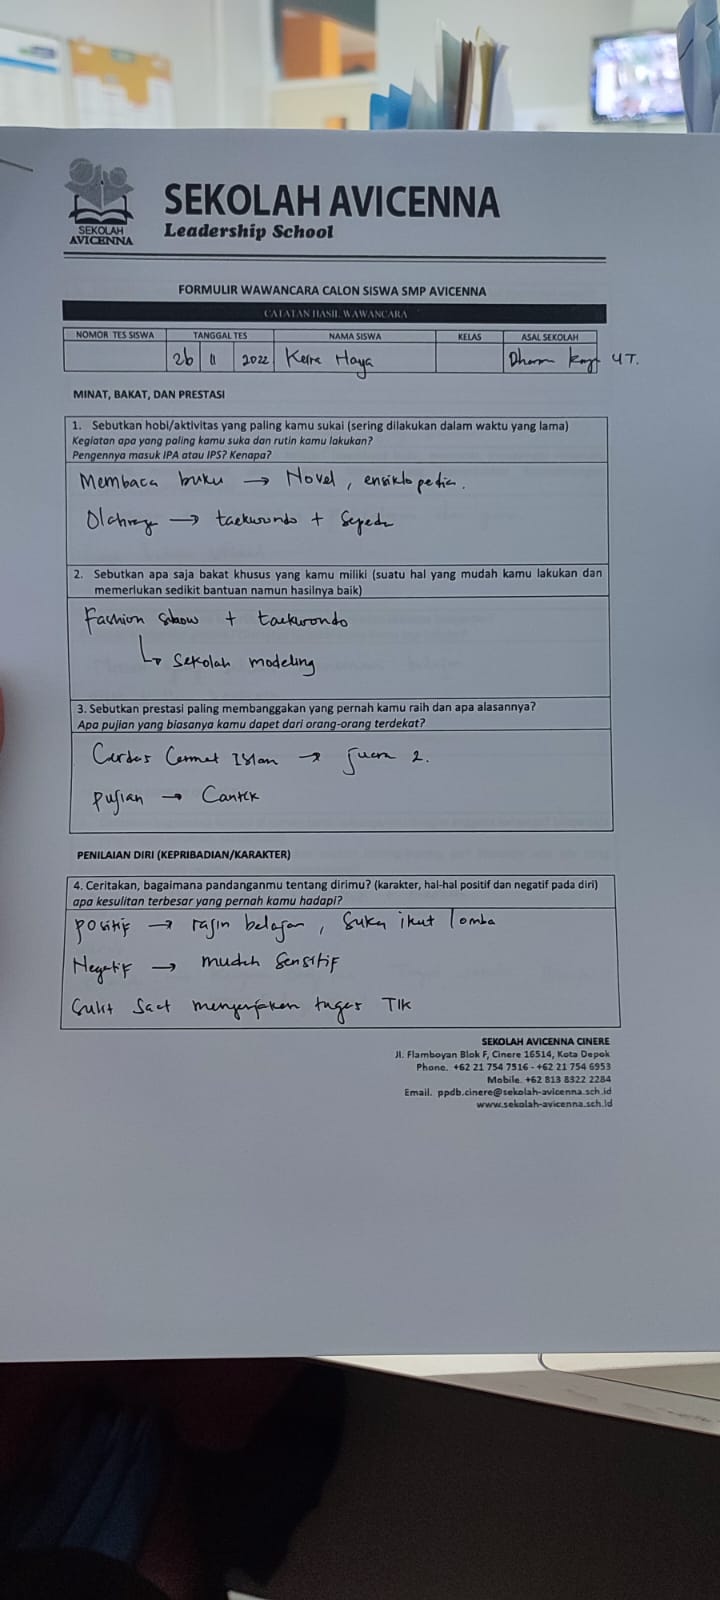 SEKOLAH AVICENNA
Leadership School
SEKOLAH
AVICENNA
FORMULIR WAWANCARA CALON SISWA SMP AVICENNA
CATATAN HASIL WAWANCARA
NOMOR TES SISWA TANGGAL TES NAMA SISWA KELAS ASAL SEKOLAH
26 11 2022 Keira Haya UT.
MINAT, BAKAT, DAN PRESTASI
1. Sebutkan hobi/aktivitas yang paling kamu sukai (sering dilakukan dalam waktu yang lama)
Kegiatan apa yang paling kamu suka dan rutin kamu lakukan?
Pengennya masuk IPA atau IPS? Kenapa?
Membaca buku → Novel, ensiklopedia.
Olahraga → taekwondo + Sepeda
2. Sebutkan apa saja bakat khusus yang kamu miliki (suatu hal yang mudah kamu lakukan dan
memerlukan sedikit bantuan namun hasilnya baik)
Fashion show + taekwondo
↳ sekolah modeling
3. Sebutkan prestasi paling membanggakan yang pernah kamu raih dan apa alasannya?
Apa pujian yang biasanya kamu dapet dari orang-orang terdekat?
Cerdas Cermat Islam → Juara 2.
Pujian → Cantik
PENILAIAN DIRI (KEPRIBADIAN/KARAKTER)
4. Ceritakan, bagaimana pandanganmu tentang dirimu? (karakter, hal-hal positif dan negatif pada diri)
apa kesulitan terbesar yang pernah kamu hadapi?
Positif → rajin belajar, suka ikut lomba
Negatif → mudah sensitif
Sulit saat mengerjakan tugas TIK
SEKOLAH AVICENNA CINERE
Jl. Flamboyan Blok F, Cinere 16514, Kota Depok
Phone. +62 21 754 7516 - +62 21 754 6953
Mobile. +62 813 8322 2284
Email. ppdb.cinere@sekolah-avicenna.sch.id
www.sekolah-avicenna.sch.id